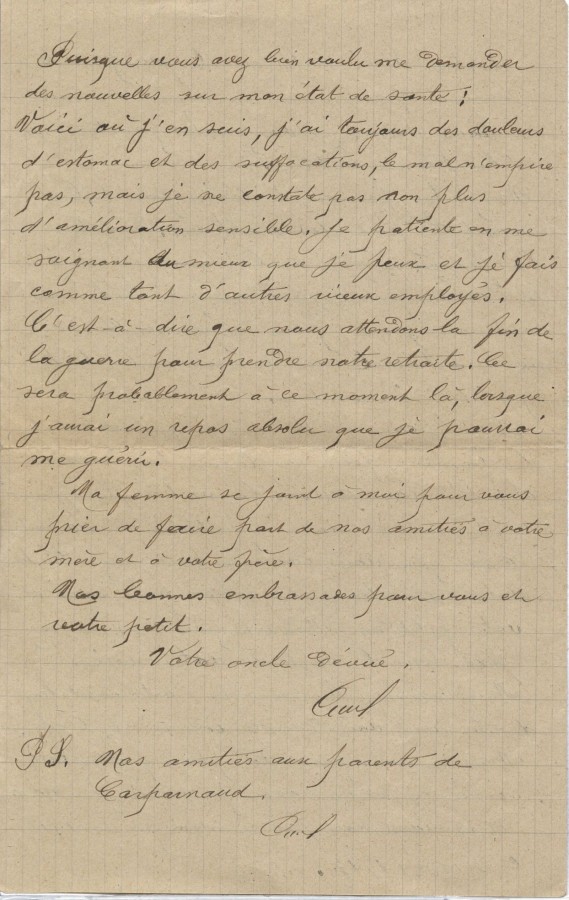 Puisque vous avez bien voulu me demander
des nouvelles sur mon état de santé !
Voici où j'en suis, j'ai toujours des douleurs
d'estomac et des suffocations, le mal n'empire
pas, mais je ne constate pas non plus
d'amélioration sensible. Je patiente en me
soignant du mieux que je peux et je fais
comme tant d'autres vieux employés.
C'est-à-dire que nous attendons la fin de
la guerre pour prendre notre retraite. Ce
sera probablement à ce moment là, lorsque
j'aurai un repos absolu que je pourrai
me guérir.
Ma femme se joint à moi pour vous
prier de faire part de nos amitiés à votre
mère et à votre père.
Nos bonnes embrassades pour vous et
votre petit.
Votre oncle dévoué.
PS. Nos amitiés aux parents de
Carparnaud.